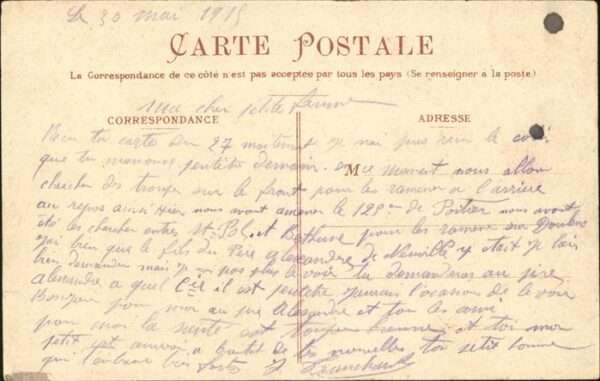 Le 30 mai 1915
CARTE POSTALE
La Correspondance de ce côté n'est pas acceptée par tous les pays (Se renseigner à la poste)
Ma cher petite femme
CORRESPONDANCE
ADRESSE
M
Recu ta carte du 27 maintenant je nai pas recu le
que tu manonce peutetre demain. en ce moment nous allon
chercher des troupe sur le front pour les ramener a l'arriere
au repos ainsi hier nous avont amener le 125eme de Poitier nous avont
été les chercher entre St Pol et Bethune pour les ramener sur Doulens
jai bien que le fils du Pere alexandre de Neuville y etait je lais
bien demander mais je nai pas pu le voir tu demanderas au père
alexandre a quel Cie il est peutetre jaurai l'ocasion de le voir
Bonjour pour moi au pere alexandre et tou les
pour moi la santé est toujours bonne et toi mon
petit
qui t'embrasse bien fort